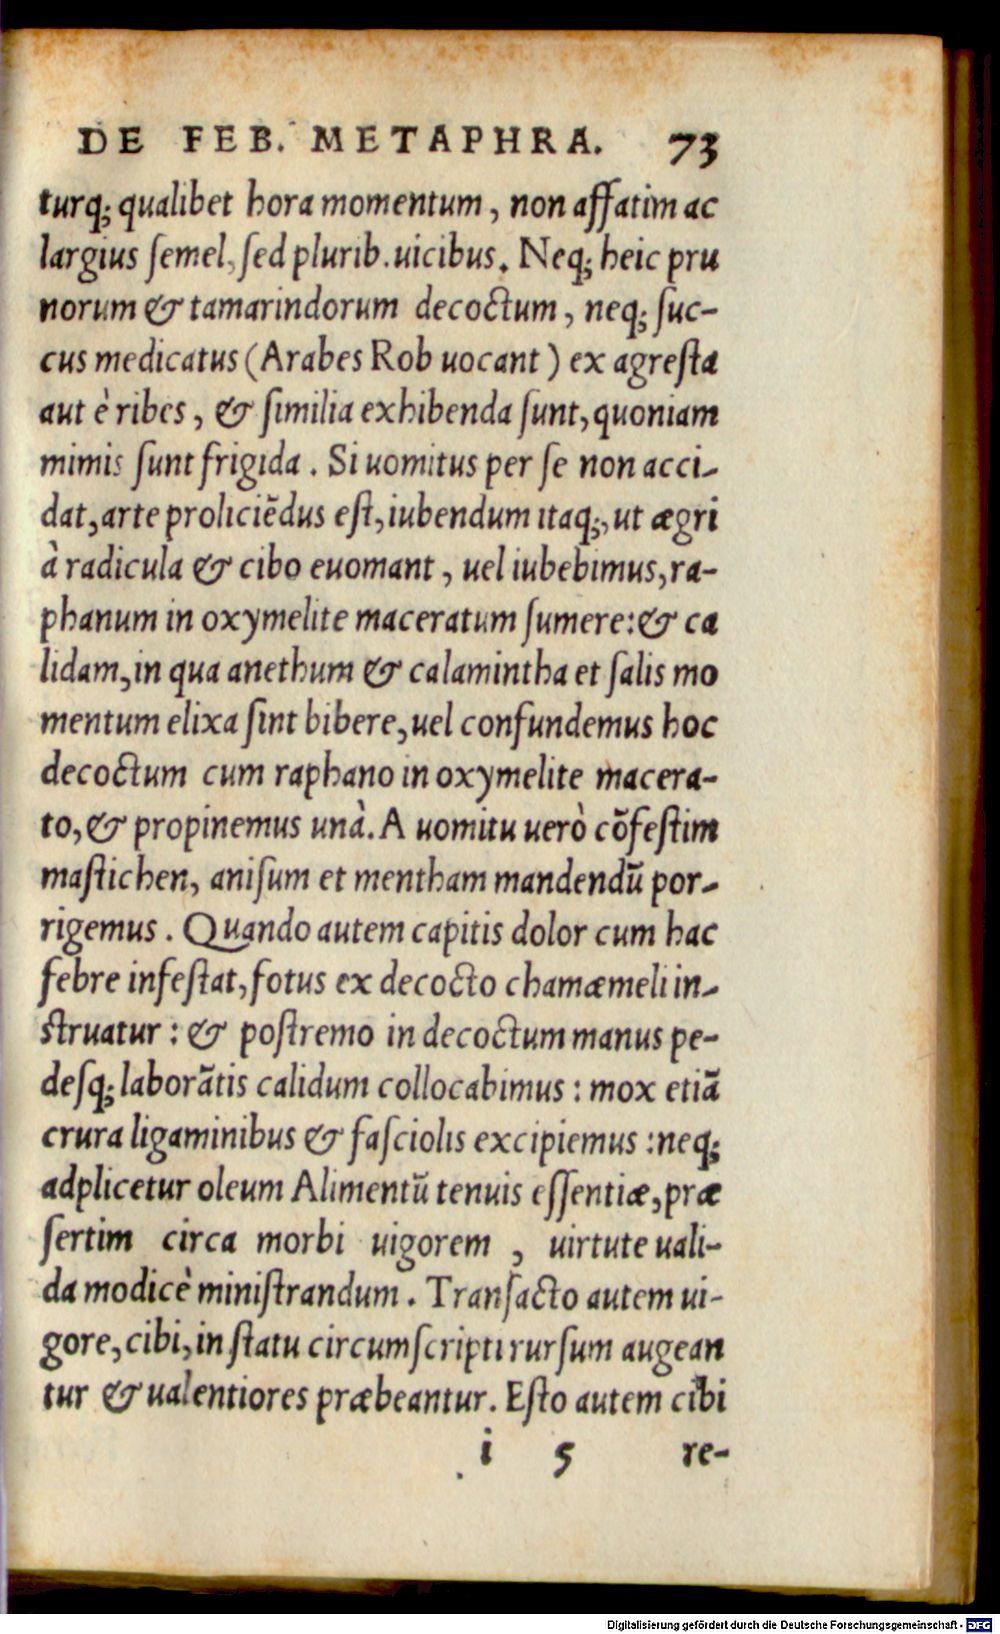 DE FEB. METAPHRA. 73
turq; qualibet hora momentum, non affatim ac
largius ſemel, ſed plurib. uicibus. Neq; heic pru
norum & tamarindorum decoctum, neq; ſuc-
cus medicatus (Arabes Rob uocant) ex agreſta
aut è ribes, & ſimilia exhibenda ſunt, quoniam
mimis ſunt frigida. Si uomitus per ſe non acci-
dat, arte proliciēdus eſt, iubendum itaq;, ut ægri
à radicula & cibo euomant, uel iubebimus, ra-
phanum in oxymelite maceratum ſumere: & ca
lidam, in qua anethum & calamintha et ſalis mo
mentum elixa ſint bibere, uel confundemus hoc
decoctum cum raphano in oxymelite macera-
to, & propinemus unà. A uomitu uerò cōfeſtim
maſtichen, aniſum et mentham mandendū por-
rigemus. Quando autem capitis dolor cum hac
febre infeſtat, fotus ex decocto chamæmeli in-
ſtruatur: & poſtremo in decoctum manus pe-
deſq; laborātis calidum collocabimus: mox etiā
crura ligaminibus & faſciolis excipiemus: neq;
adplicetur oleum Alimentū tenuis eſſentiæ, præ
ſertim circa morbi uigorem, uirtute uali-
da modicè miniſtrandum. Tranſacto autem ui-
gore, cibi, in ſtatu circumſcripti rurſum augean
tur & ualentiores præbeantur. Eſto autem cibi
i 5 re-
Digitalisierung gefördert durch die Deutsche Forschungsgemeinschaft - DFG